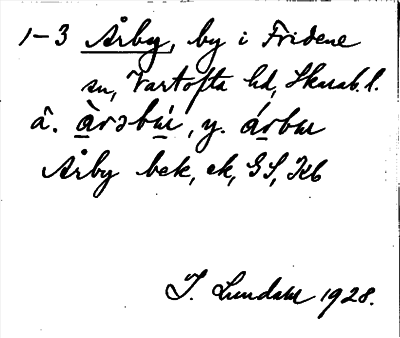 1-3 Årby, by i Fridene
sn, Vartofta hd, Skarab. l.
â. àrəbù, y. árbu
Årby bek, ek, GS, Kb
I. Lundahl 1928.